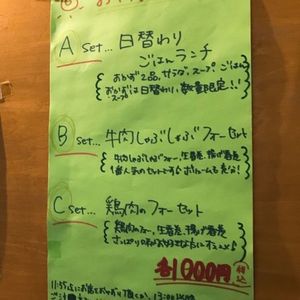 A set... 日替わり
ごはんランチ
おかず2品、サラダ、スープ、ごはん
おかず・スープは日替わり、数量限定!!
B set... 牛肉しゃぶしゃぶフォーセット
牛肉しゃぶしゃぶフォー、生春巻、揚げ春巻
1番人気のセットです♪ボリュームも充分!
C set... 鶏肉のフォーセット
鶏肉のフォー、生春巻、揚げ春巻
さっぱり味がお好きな方にオススメ♪
各1000円 税込